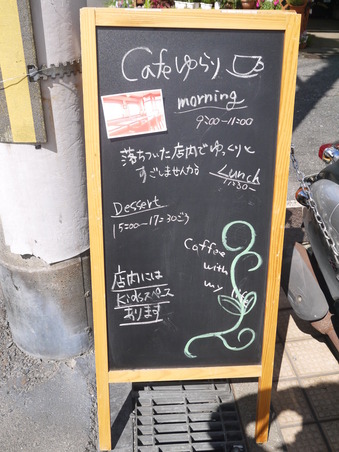 Cafe ゆらり
morning
9:00-11:00
落ちついた店内でゆっくりと
すごしませんか
Lunch
11:30~
Dessert
15:00-17:30ごろ
Coffee
with
my
店内には
Kidsスペース
あります